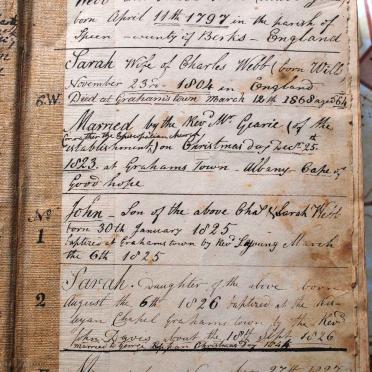 born April 11th 1797 in the parish of
Speen county of Berks - England
Sarah Wife of Charles Webb (born Will
November 23rd - 1804 in England
6.W. Died at Grahamstown March 12th 1868 aged 64
Married by the Revd Mr. Geary (of the
establishment,) on Christmas day Decr 25th
1823 at Grahams Town - Albany Cape of
Good hope
No 1
John - Son of the above Chas & Sarah Webb
born 30th January 1825
Baptized at Grahamstown by Revd Young March
the 6th 1825
2
Sarah - Daughter of the above born
August the 6th 1826 Baptized at the Wes
leyan Chapel Grahams town by the Revd
John Davis about the 18th Sept. 1826
Married to George Christmas Day